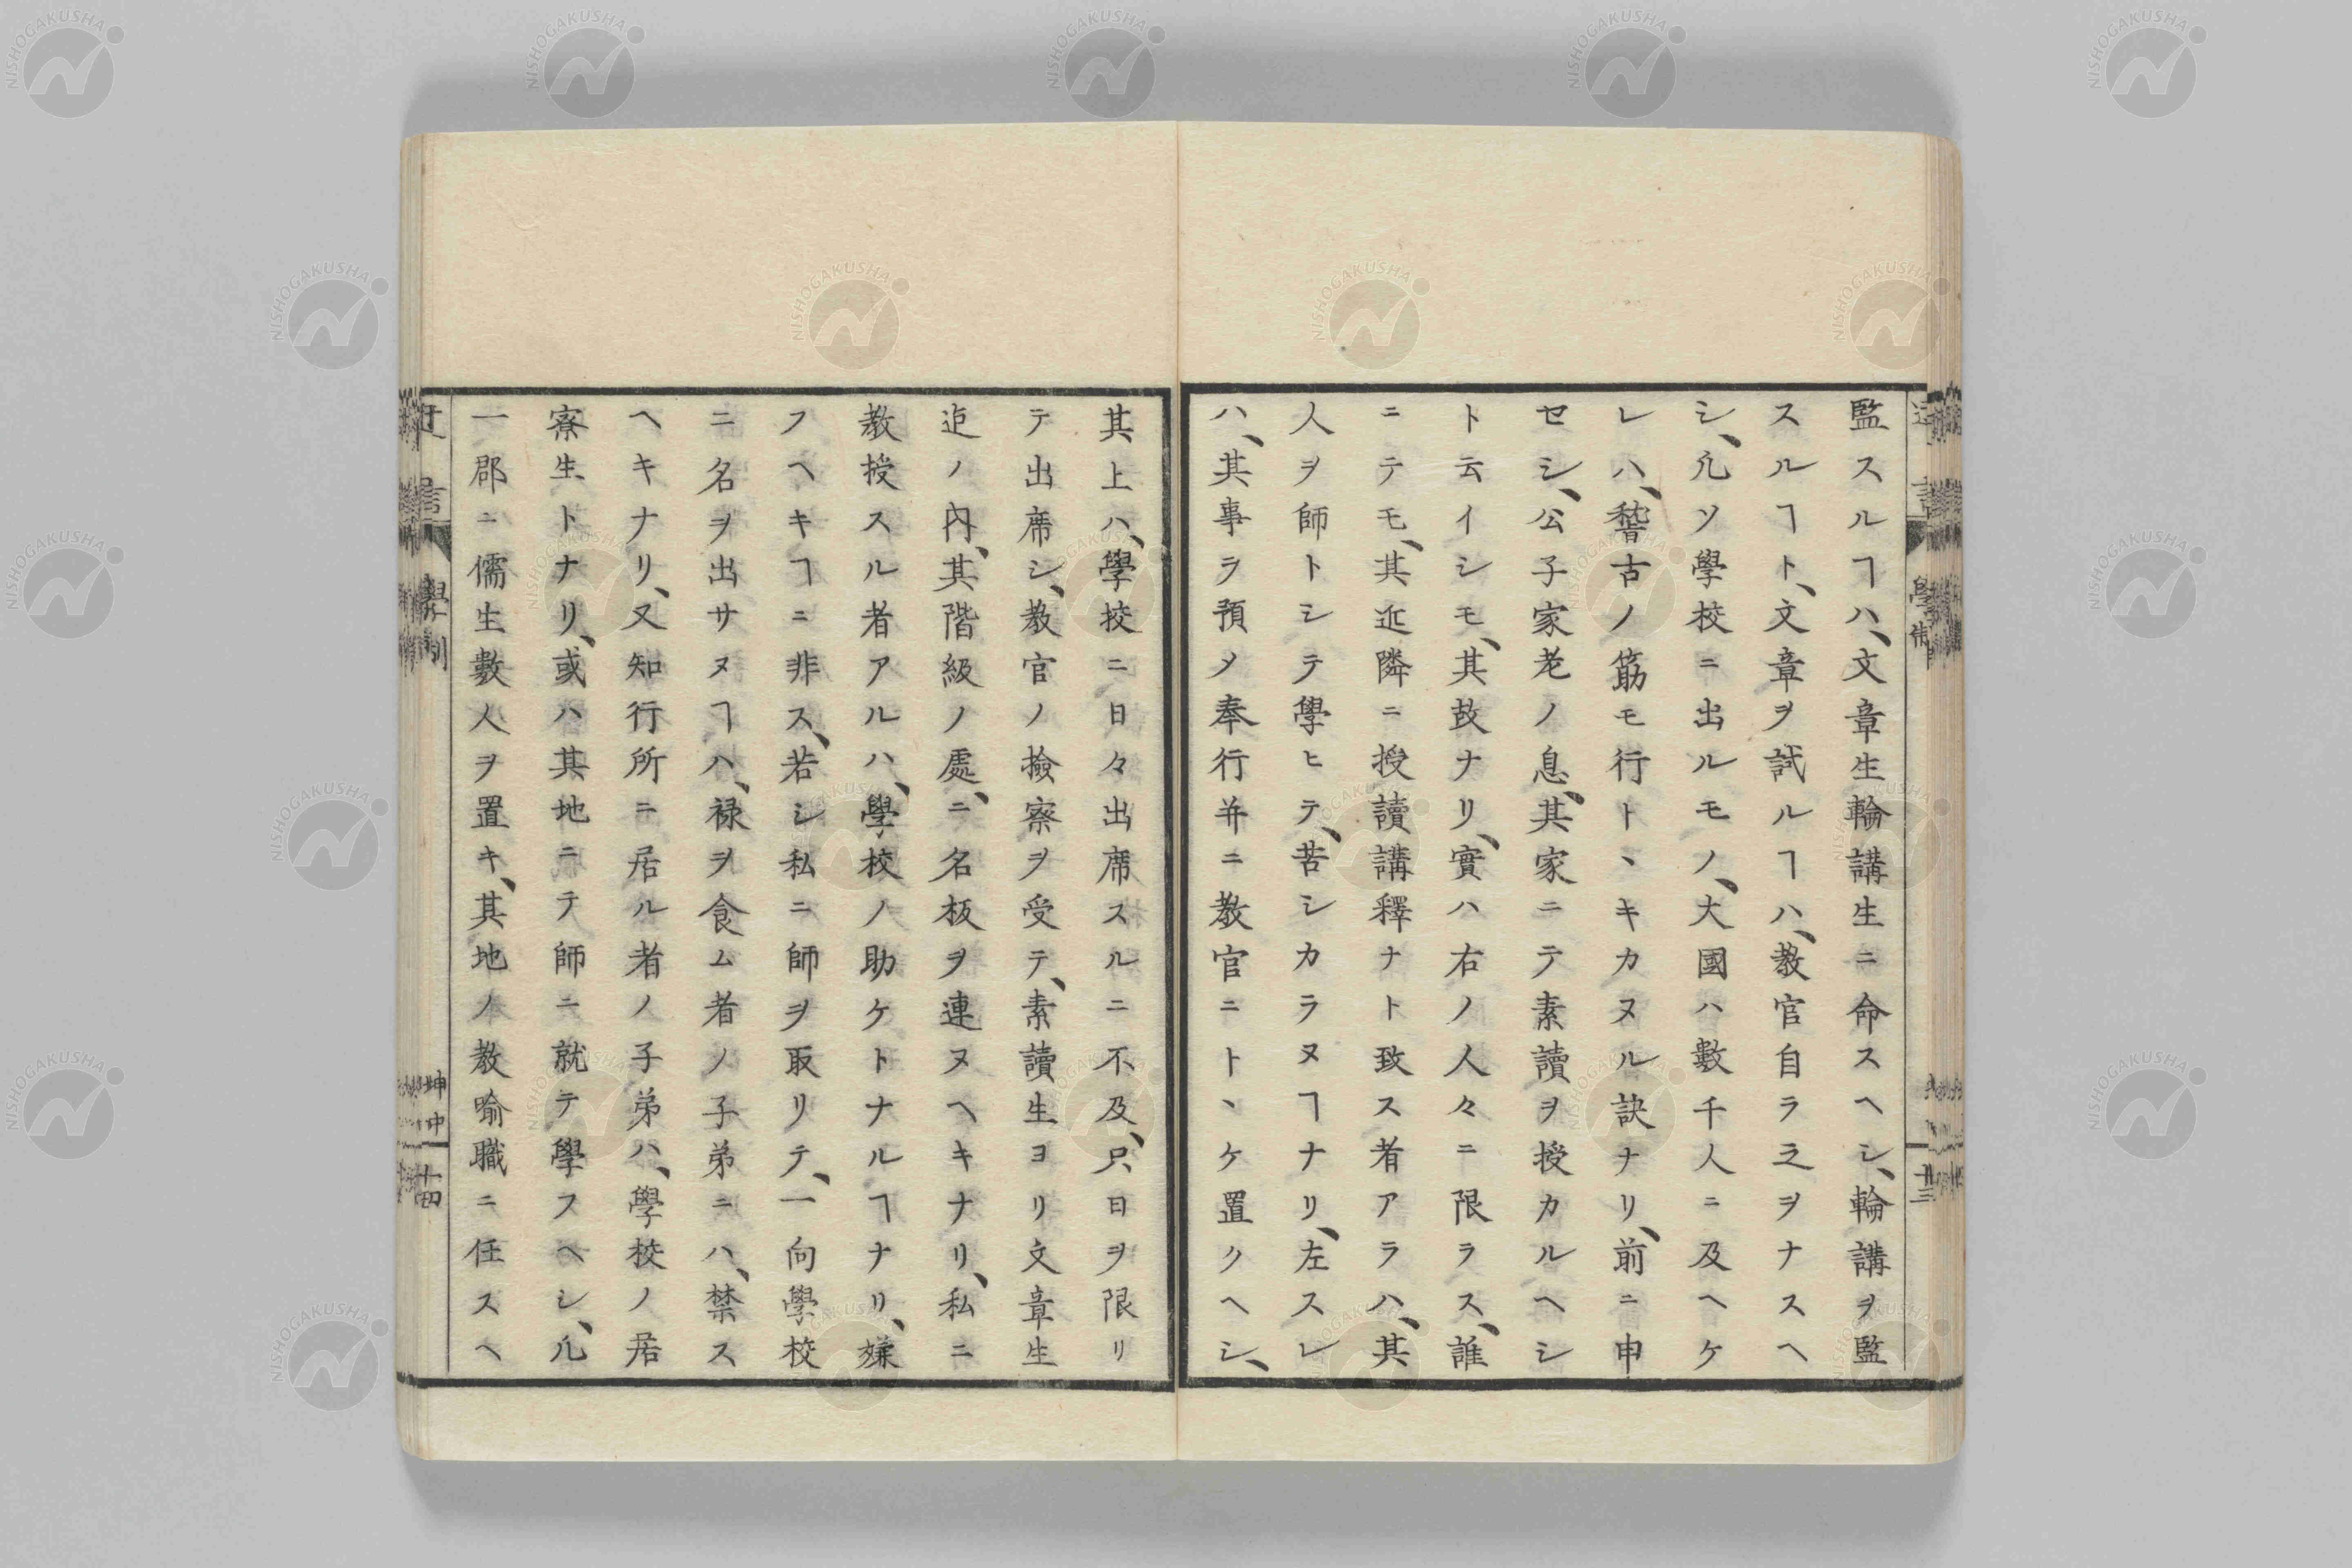 監スルヿハ、文章生輪講生ニ命スヘシ、輪講ヲ監
スルヿト、文章ヲ試ルヿハ、教官自ラ之ヲナスヘ
シ、凢ソ學校ニ出ルモノ、大國ハ數千人ニ及ヘケ
レハ、稽古ノ筋モ行トヽキカヌル訣ナリ、前ニ申
セシ、公子家老ノ息、其家ニテ素讀ヲ授カルヘシ
ト云イシモ、其故ナリ、實ハ右ノ人々ニ限ラス、誰
ニテモ、其近隣ニ授讀講釋ナト致ス者アラハ、其
人ヲ師トシテ學ヒテ、苦シカラヌヿナリ、左スレ
ハ、其事ヲ預メ奉行并ニ教官ニトヽケ置クヘシ、
其上ハ、學校ニ日々出席スルニ不及、只日ヲ限リ
テ出席シ、教官ノ撿察ヲ受テ、素讀生ヨリ文章生
迠ノ內、其階級ノ處、ニ名板ヲ連ヌヘキナリ、私ニ
教授スル者アルハ、學校ノ助ケトナルヿナリ、嫌
フヘキヿニ非ス、若シ私ニ師ヲ取リテ、一向學校
ニ名ヲ出サヌヿハ、禄ヲ食ム者ノ子弟ニハ、禁ス
ヘキナリ、又知行所ニ居ル者ノ子弟ハ、學校ノ居
寮生トナリ、或ハ其地ニテ師ニ就テ學スヘシ、凢
一郡ニ儒生數人ヲ置キ、其地ノ教喻職ニ任スヘ
NISHOGAKUSHA